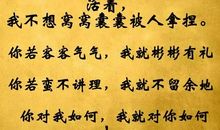 活着，
我不想窝窝囊囊被人拿捏。
你若客客气气，我就彬彬有礼
你若蛮不讲理，我就不留余地
你对我如何，我就对你如何